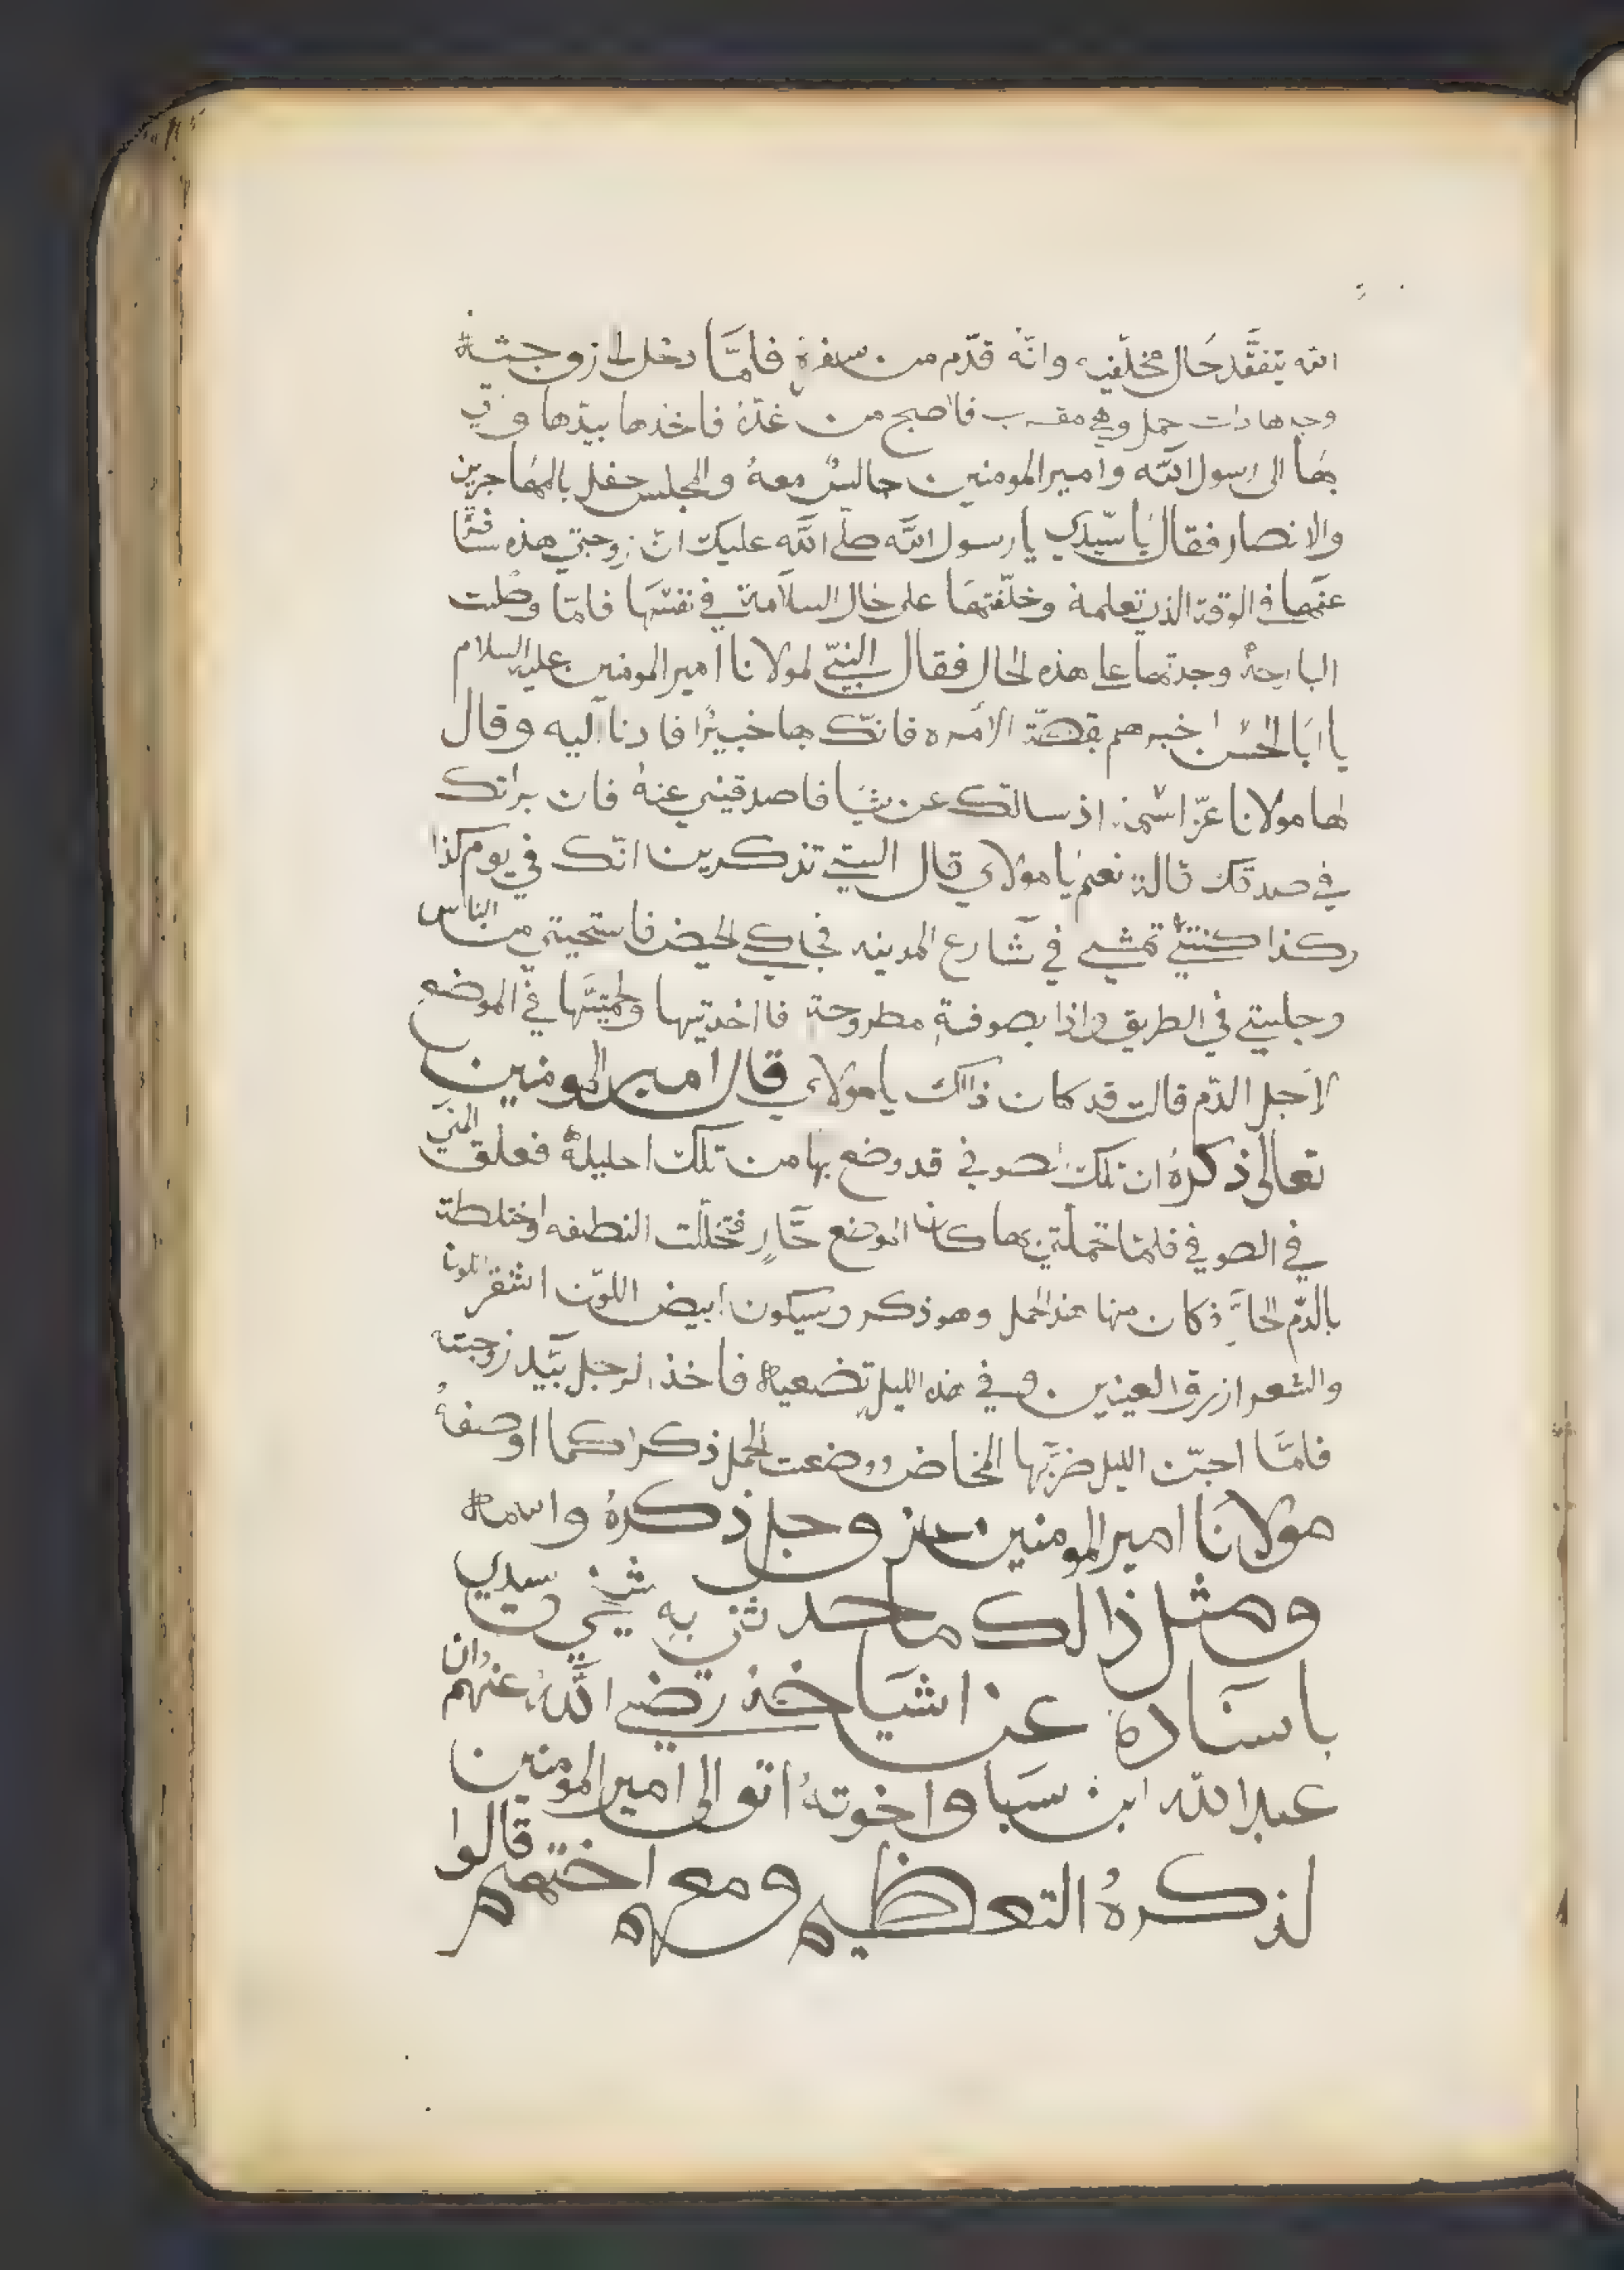 الله يتفقّد حال مخلّفيه وانّه قدّم من سفرة فلمّا دخل الى زوجته
وجدها دات حمل وهي مقرب فاصبح من غدّه فاخذها بيدّها واتي
بها الى رسول الله وامير المومنين جالسٌ معهُ والمجلس حفل بالمهاجرين
والانصار فقال يا سّيدي يا رسول الله صلّى الله عليك انّ زوجتي هذه سافرّت
عنها في الوقت الذي تعلمة وخلّفتها على حال السلامة في نفسها فلمّا وصلت
البارحة وجدتها على هذه الحال فقال النبيّ لمولانا امير المومنين عليه السلام
يا ابا الحسن اخبرهم بقصّة الامره فانّك بها خبيرًا فادنا اليه وقال
لها مولانا عزّ اسمه اذ سالتك عن شيا فاصدقيني عنهُ فان براتك
في صدقك قالة نعم يا مولاي قال الستي تذكرين انّك في يوم كذا
وكذا كنتي تمشي في شارع المدينه فجاكي الحيض فاستحيتي من الناس
وجلستي في الطريق واذا بصوفة مطروحة فااخدتيها ولحميتها في الموضع
لاجل الدّم قالت قد كان ذالك يا مولاي قال امير المومنين
تعالى ذكرهُ ان تلك الصوفي قد وضع بها من تلك احليلهُ فعلق المني
في الصوفي فلمّا تحملتي بها كان الموضع حَارٍ فتخللت النطفه اوختلطة
بالدّم الحارّ فكان منها هذ الحمل وهو ذكر وسيكون ابيض اللوّن اشقر اللونا
والشعر ازرق العينين وفي هذه الليل تضعيه فاخذ الرجل بيّد زوجته
فلمَّا اجنّ الليل ضربّها المخاض ووضعت الحمل ذكرا كما اوصفهُ
مولانا امير المومنين عز وجل ذكرهُ واسمه
ومثل ذالك ما حدثني به شيخي سيدي
باسناده عن اشياخه رضي الله عنهم وان
عبد الله ابن سبا واخوتهُ اتو الى امير المومنين
لذكرهُ التعظيم ومعهم اختهم قالوا